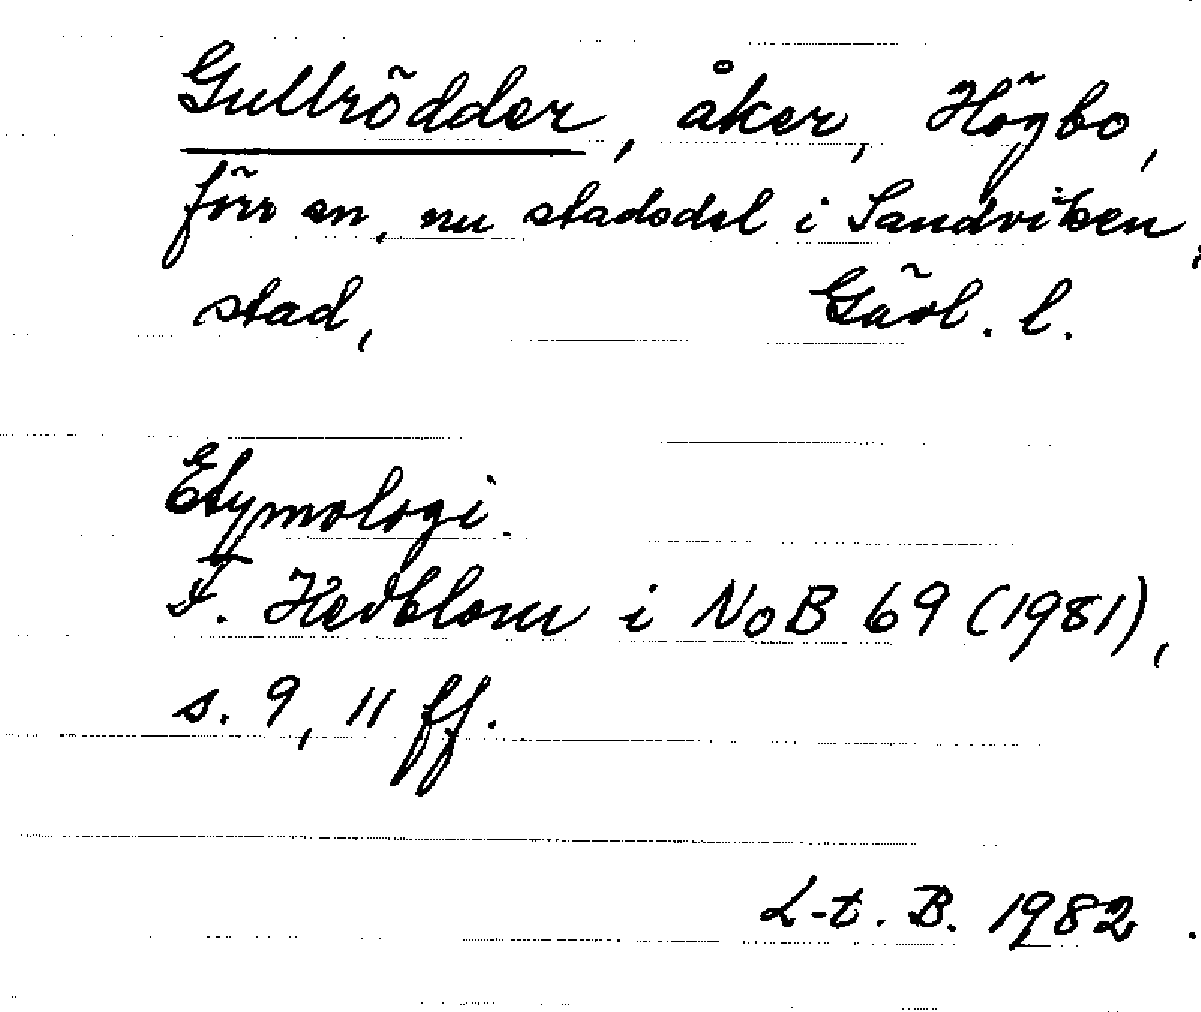 Gullrödder, åker, Högbo,
förr sn, nu stadsdel i Sandviken,
stad, Gävl. l.
Etymologi.
F. Hedblom i NoB 69 (1981),
s. 9, 11 ff.
L-t. B. 1982.